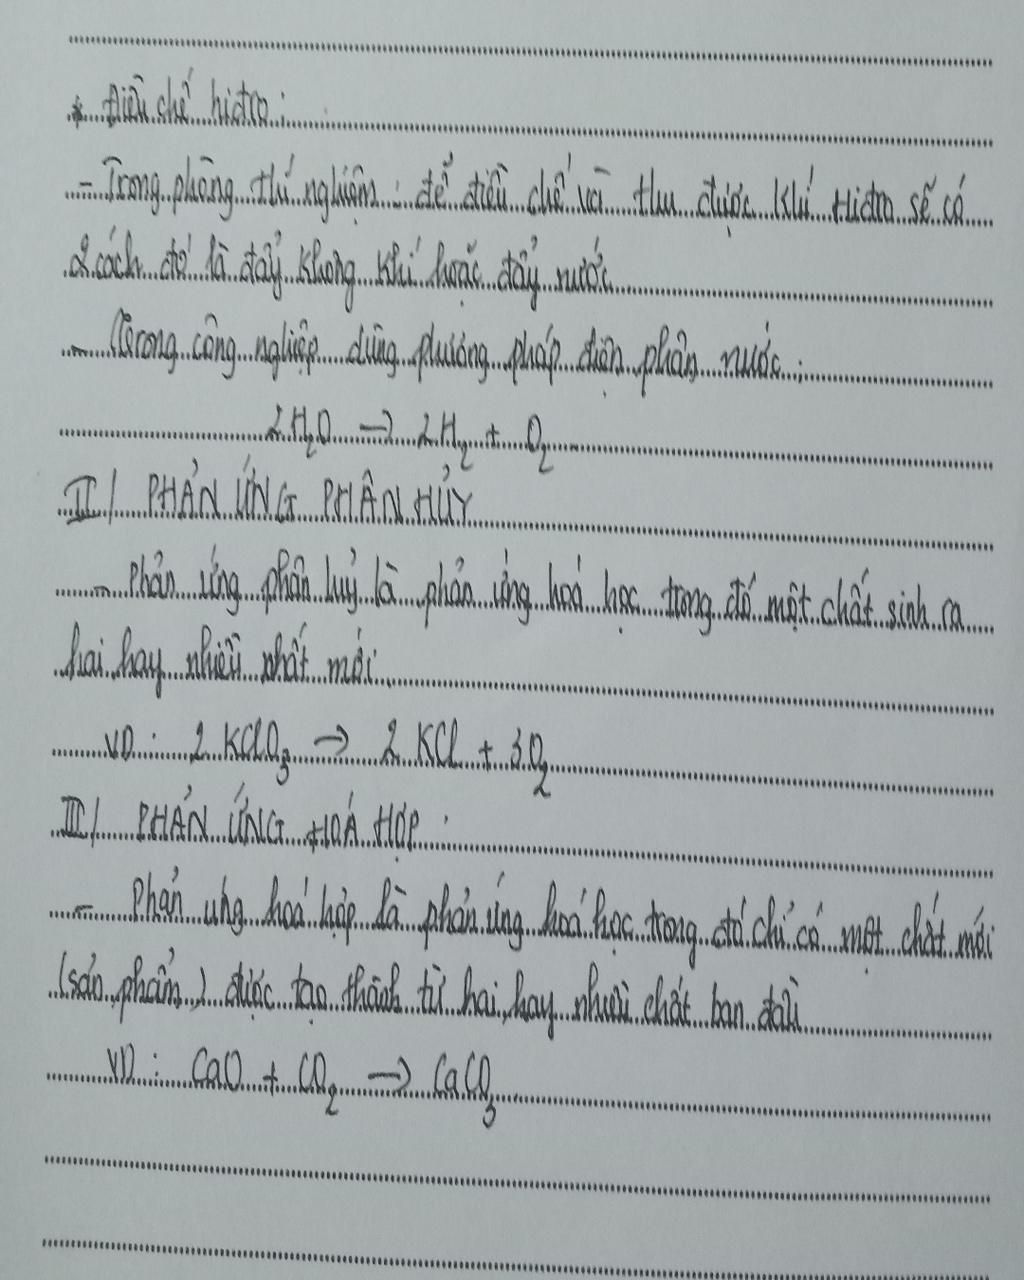 * Điều chế hidro :
- Trong phòng thí nghiệm : để điều chế và thu được khí Hidro sẽ có
2 cách đó là đẩy không khí hoặc đẩy nước
- Trong công nghiệp dùng phương pháp điện phân nước :
2H₂O → 2H₂ + O₂
II/ PHẢN ỨNG PHÂN HỦY
- Phản ứng phân huỷ là phản ứng hoá học trong đó một chất sinh ra
hai hay nhiều chất mới
VD : 2 KClO₃ → 2 KCl + 3O₂
III/ PHẢN ỨNG HOÁ HỢP :
- Phản ưng hoá hợp là phản ứng hoá học trong đó chỉ có một chất mới
(sản phẩm) được tạo thành từ hai hay nhiều chất ban đầu
VD : CaO + CO₂ → CaCO₃